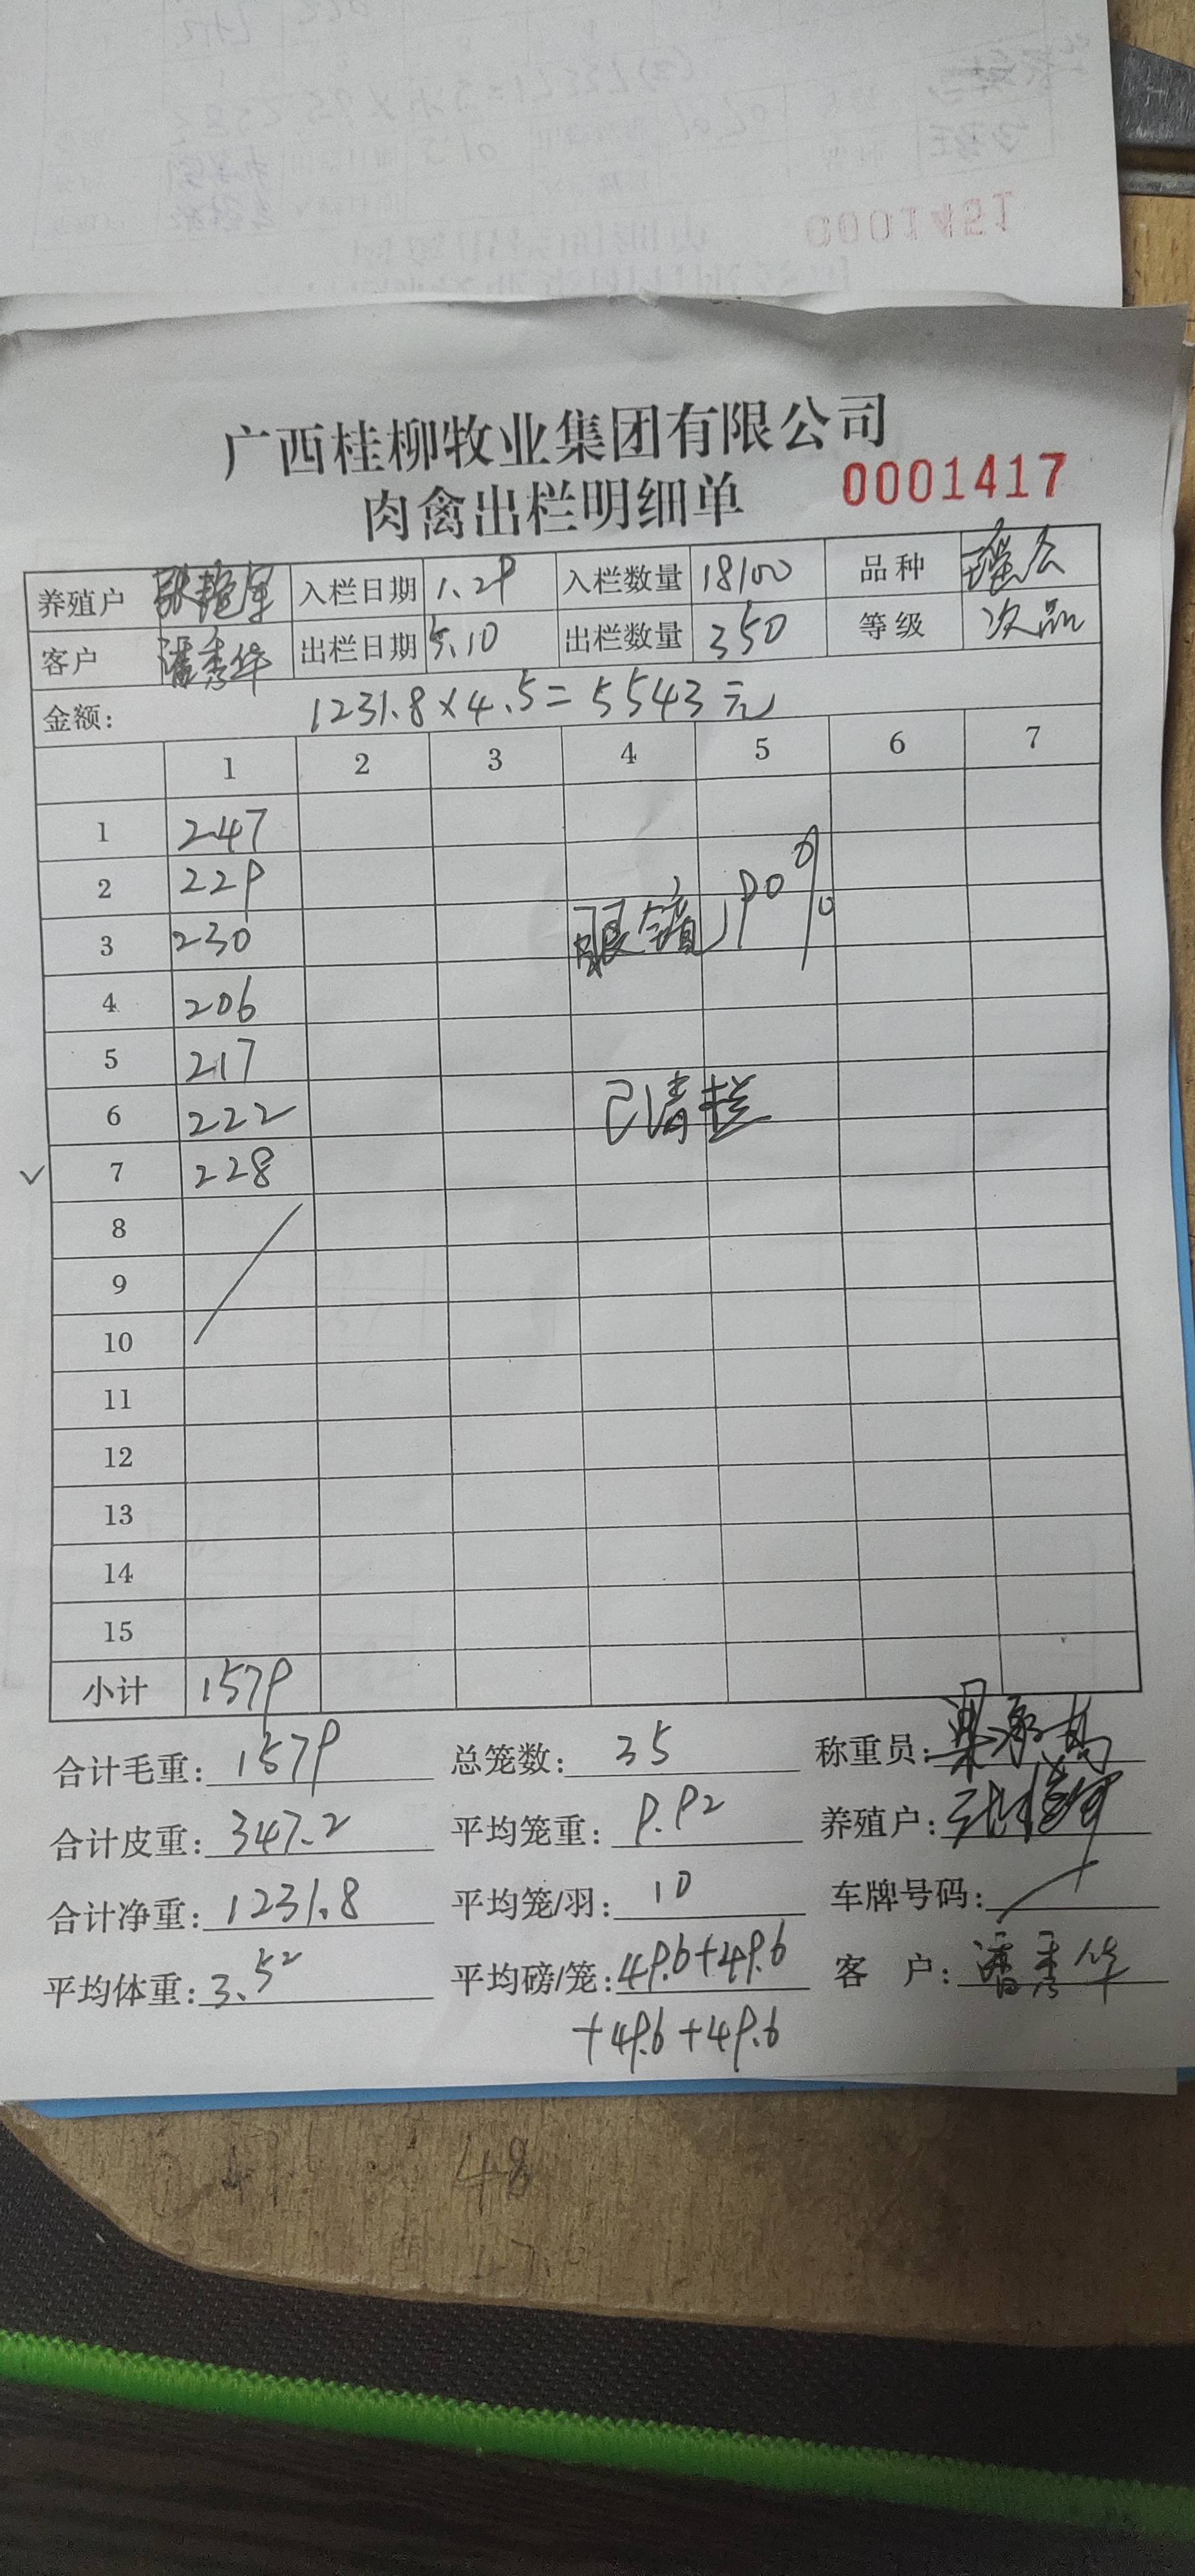 0001451
广西桂柳牧业集团有限公司
肉禽出栏明细单 0001417
养殖户 入栏日期 1.29 入栏数量 18100 品种 瑶公
客户 潘秀华 出栏日期 5.10 出栏数量 350 等级 次品
金额: 1231.8×4.5=5543元
1 2 3 4 5 6 7
1 247
2 229
3 230 眼镜 90%
4 206
5 217
6 222 已清栏
7 228
8
9
10
11
12
13
14
15
小计 1579
合计毛重: 1579 总笼数: 35 称重员:
合计皮重: 347.2 平均笼重: 9.92 养殖户:
合计净重: 1231.8 平均笼/羽: 10 车牌号码:
平均体重: 3.52 平均磅/笼: 49.6+49.6 客户: 潘秀华
+49.6+49.6
48